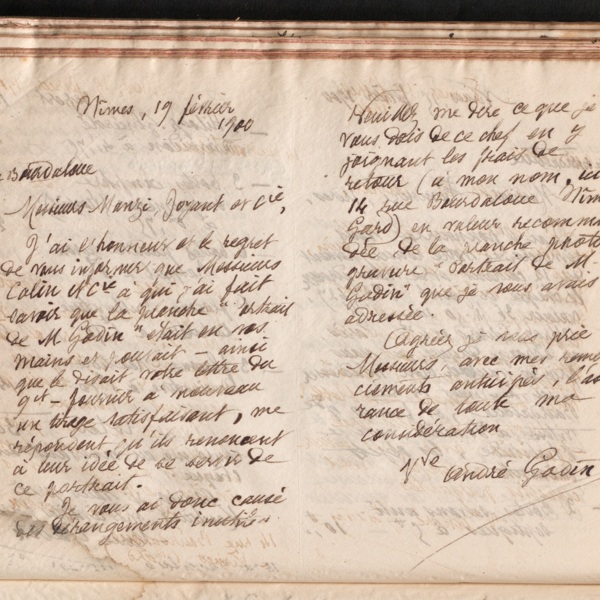 Nîmes, 19 février
1900
Bourdaloue
Messieurs Manzi Joyant et Cie,
J'ai l'honneur et le regret
de vous informer que Messieurs
Colin & Cie à qui j'ai fait
savoir que la planche "Portrait
de M. Godin" était en vos
mains et pouvait – ainsi
que le disait votre lettre du
9 ct – fournir à nouveau
un tirage satisfaisant, me
répondent qu'ils renoncent
à leur idée de se servir de
ce portrait.
Je vous ai donc causé
des dérangements inutiles.
Veuillez me dire ce que je
vous dois de ce chef en y
joignant les frais de
retour (à mon nom, ici
14 rue Bourdaloue Nîmes
Gard) en valeur recomman
dée de la planche photo
gravure "Portrait de M.
Godin" que je vous avais
adressée.
Agréez je vous prie
Messieurs, avec mes remer
ciements anticipés, l'assu
rance de toute ma
considération
Vve André Godin